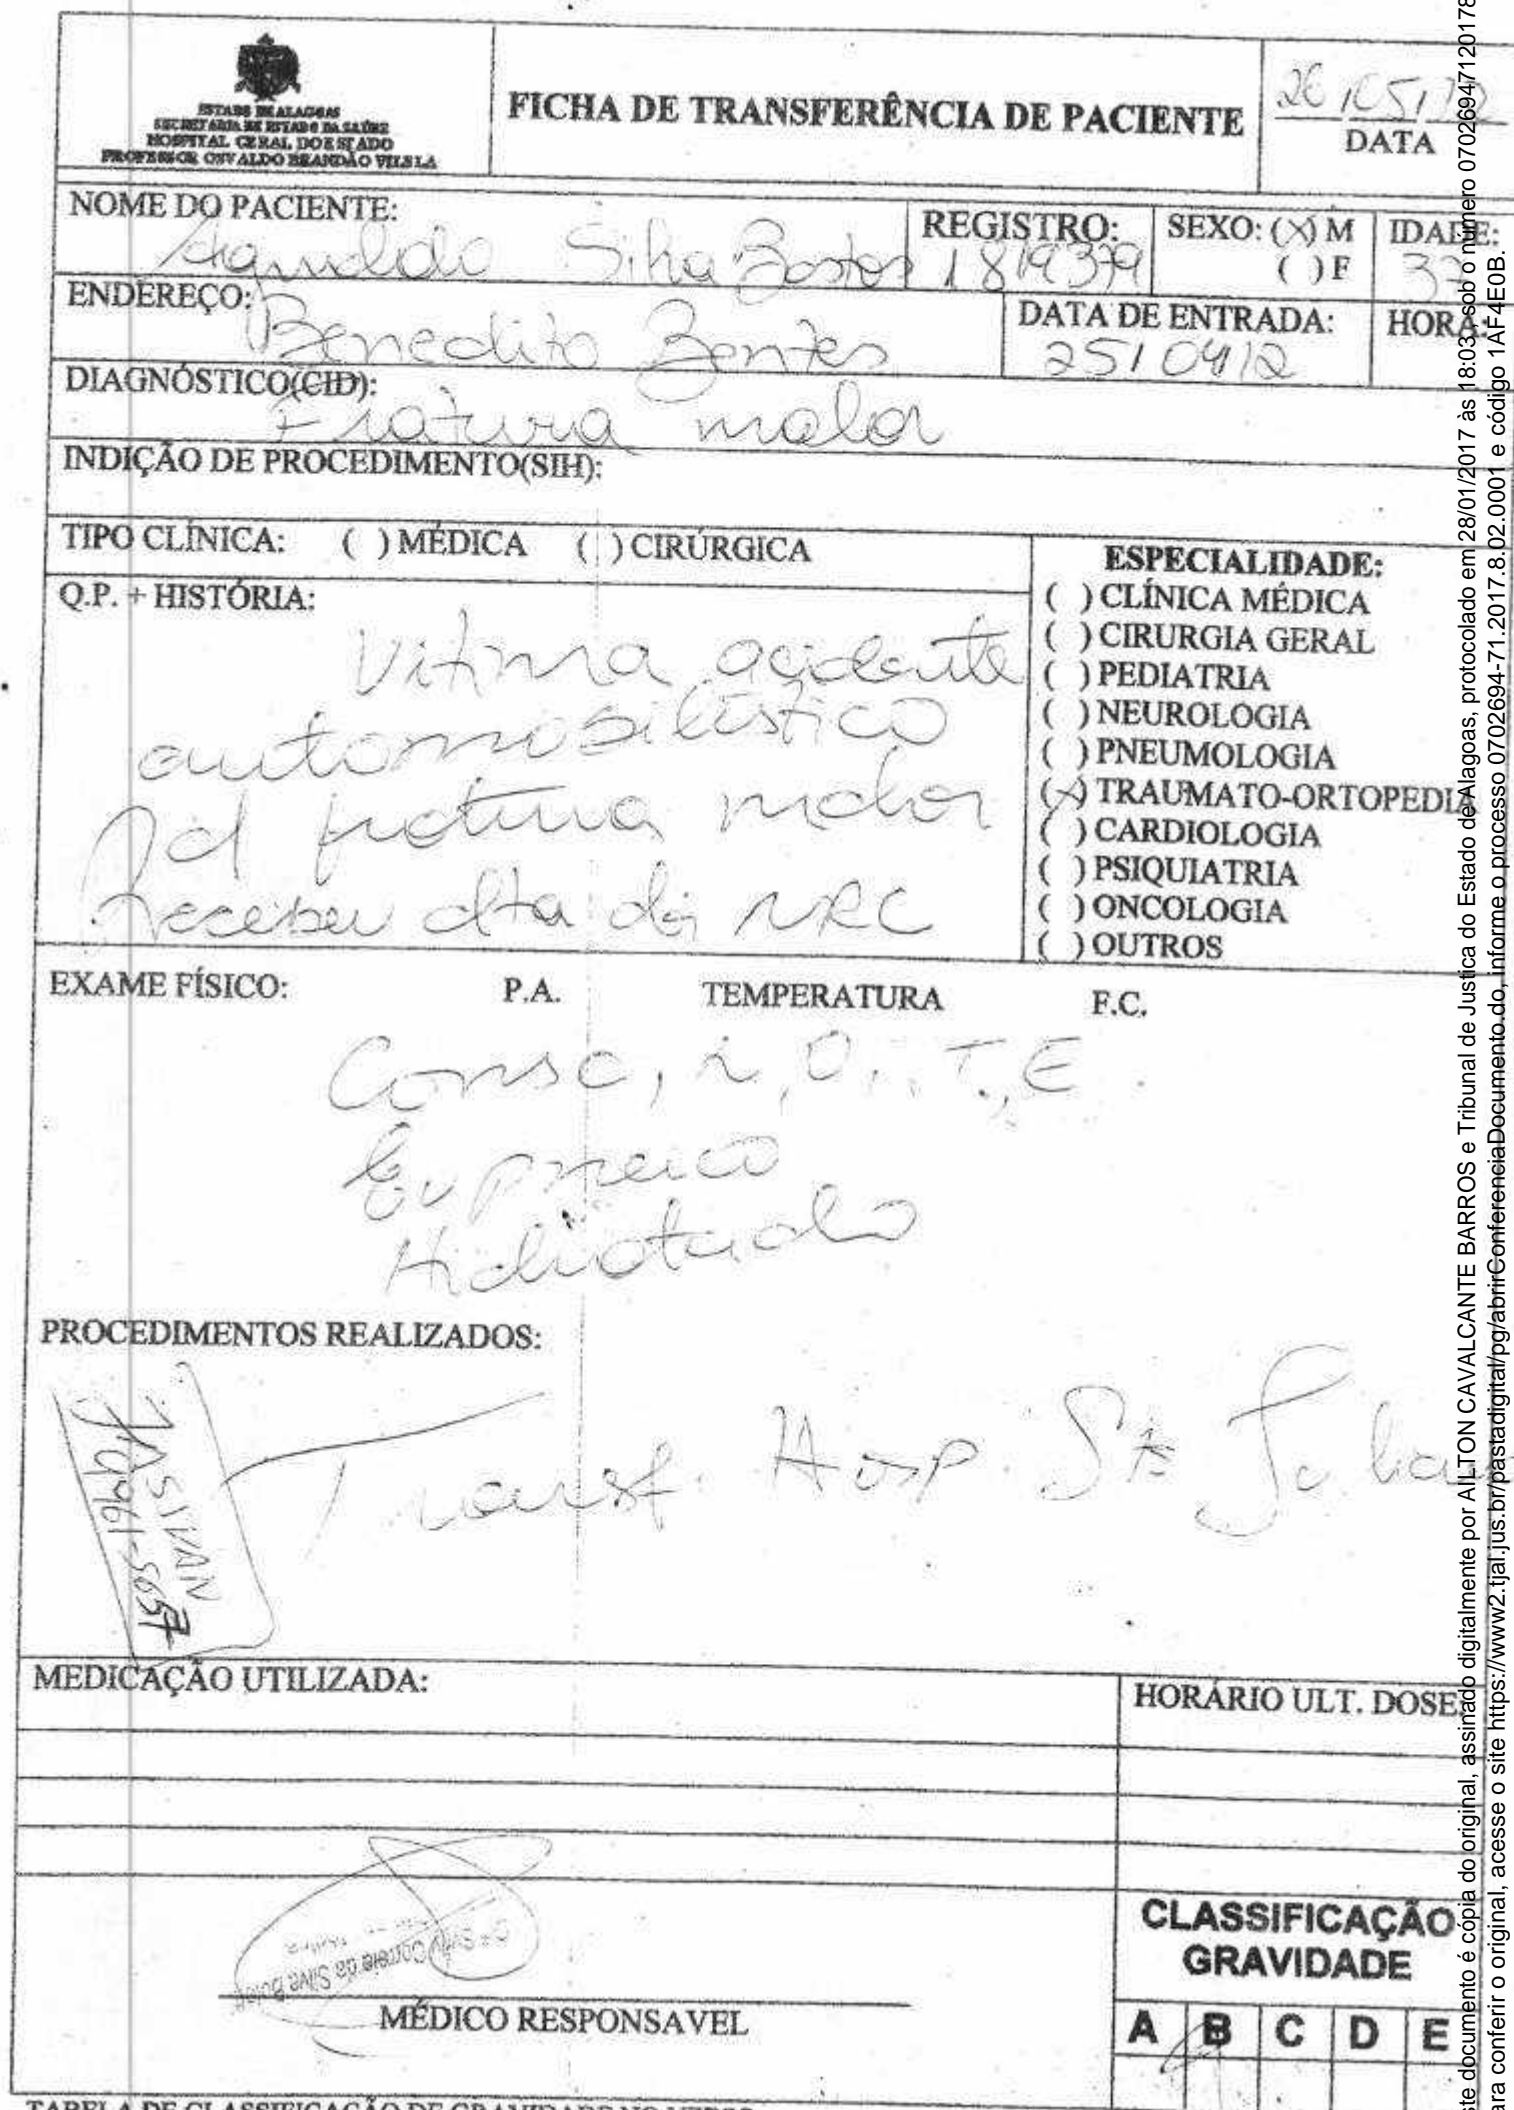 ESTADO DE ALAGOAS
SECRETARIA DE ESTADO DA SAÚDE
HOSPITAL GERAL DO ESTADO
PROFESSOR OSVALDO BRANDÃO VILELA
FICHA DE TRANSFERÊNCIA DE PACIENTE
26/05/12
DATA
NOME DO PACIENTE:
Agnaldo Silva Bastos
REGISTRO:
1819379
SEXO: (X) M
( ) F
IDADE:
37
ENDEREÇO:
Benedito Bentes
DATA DE ENTRADA:
25/04/12
HORA:
DIAGNÓSTICO(CID):
Fratura malar
INDIÇÃO DE PROCEDIMENTO(SIH):
TIPO CLÍNICA: ( ) MÉDICA ( ) CIRÚRGICA
Q.P. + HISTÓRIA:
Vitima acidente
automobilistico
fratura malar
recebeu alta da NRC
ESPECIALIDADE:
( ) CLÍNICA MÉDICA
( ) CIRURGIA GERAL
( ) PEDIATRIA
( ) NEUROLOGIA
( ) PNEUMOLOGIA
(X) TRAUMATO-ORTOPEDIA
( ) CARDIOLOGIA
( ) PSIQUIATRIA
( ) ONCOLOGIA
( ) OUTROS
EXAME FÍSICO: P.A. TEMPERATURA F.C.
Consc, L, O, T, E
Eupneico
Hidratado
PROCEDIMENTOS REALIZADOS:
Transf. Hosp. St
MEDICAÇÃO UTILIZADA:
HORÁRIO ULT. DOSE:
Correia da Silva
MÉDICO RESPONSAVEL
CLASSIFICAÇÃO
GRAVIDADE
A B C D E
TABELA DE CLASSIFICAÇÃO DE GRAVIDADE NO VERSO
ste documento é cópia do original, assinado digitalmente por AILTON CAVALCANTE BARROS e Tribunal de Justica do Estado de Alagoas, protocolado em 28/01/2017 às 18:03, sob o número 07026947120178
ara conferir o original, acesse o site https://www2.tjal.jus.br/pastadigital/pg/abrirConferenciaDocumento.do, informe o processo 0702694-71.2017.8.02.0001 e código 1AF4E0B.